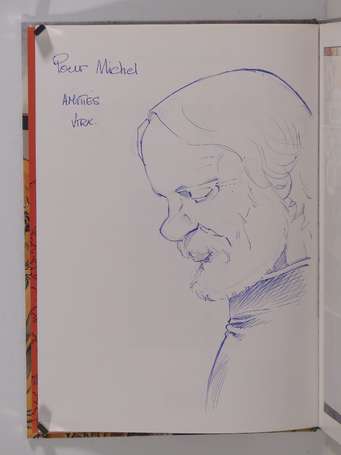 Pour Michel
AMITIÉS
VIRX.